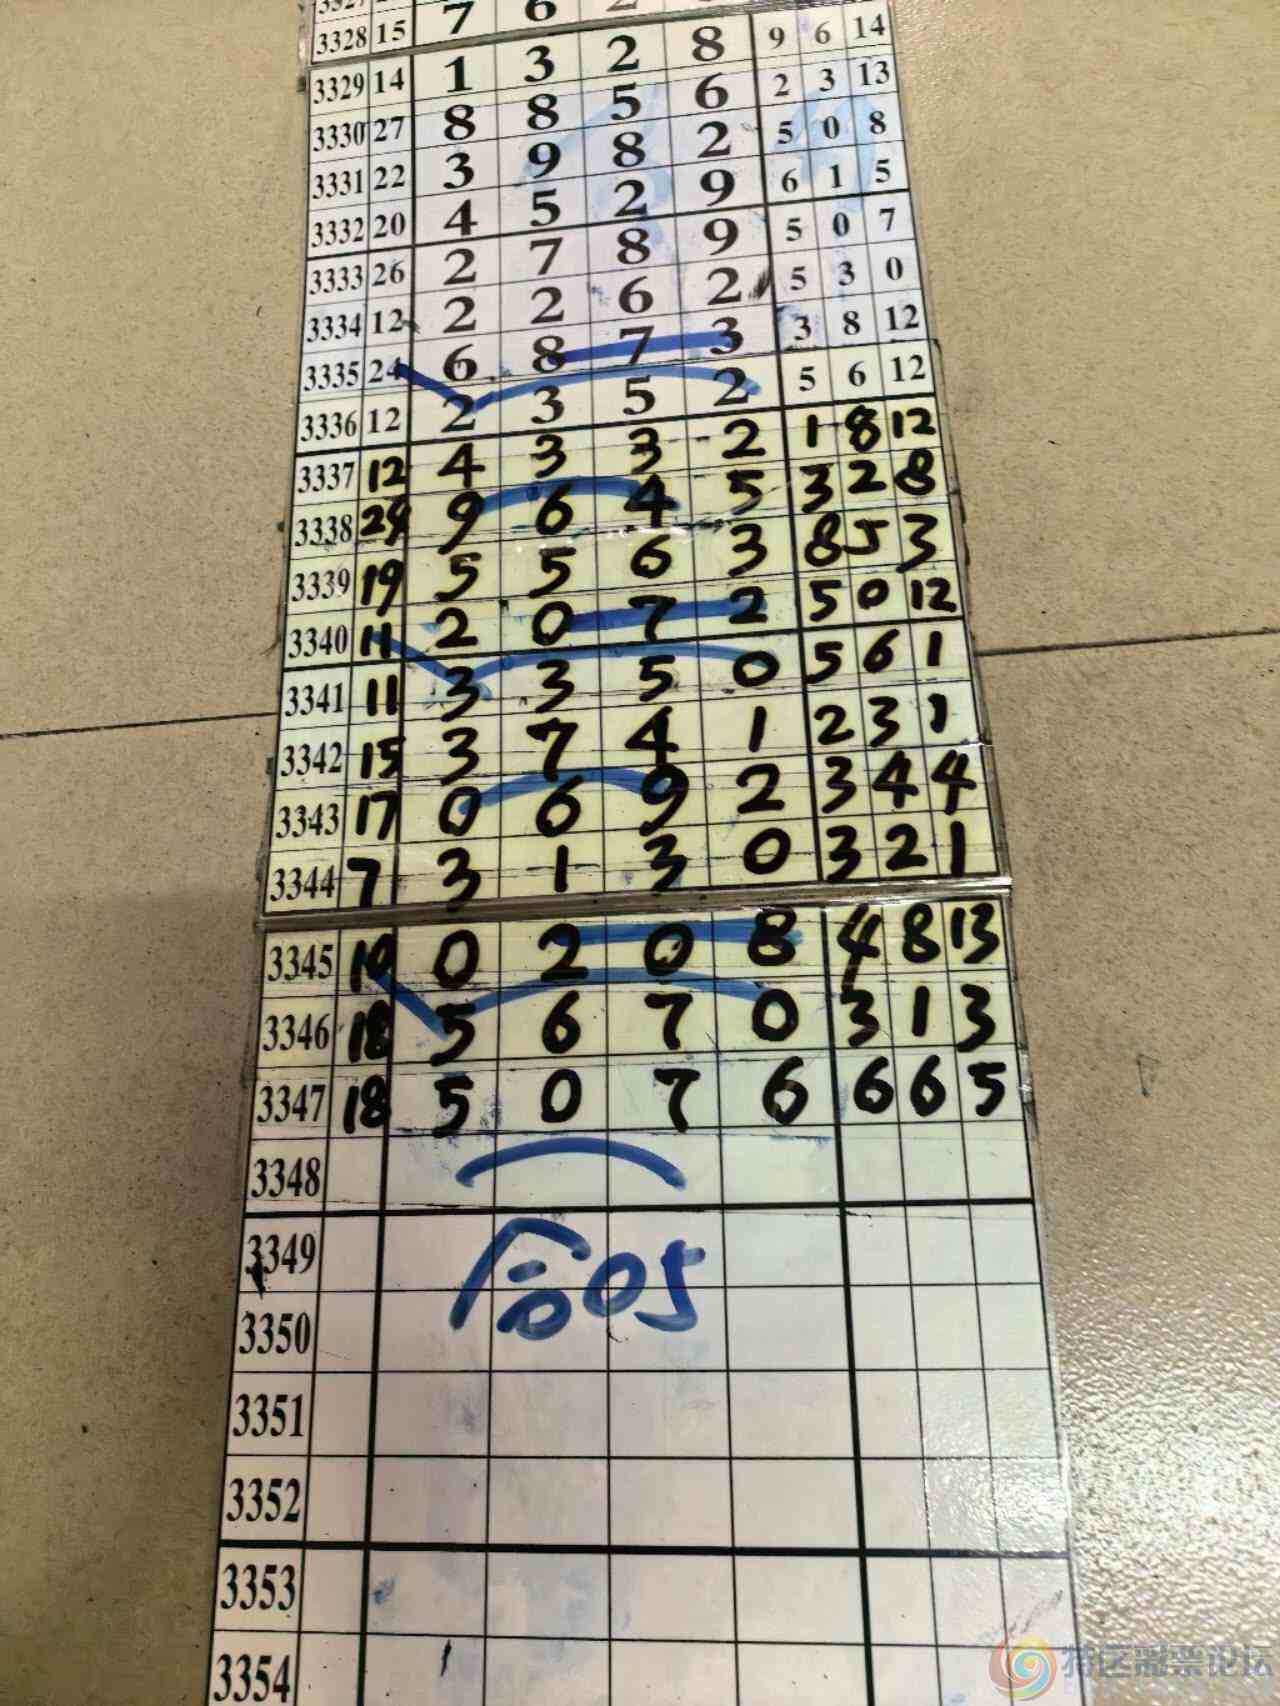 3328 15 7 6 2
3329 14 1 3 2 8 9 6 14
3330 27 8 8 5 6 2 3 13
3331 22 3 9 8 2 5 0 8
3332 20 4 5 2 9 6 1 5
3333 26 2 7 8 9 5 0 7
3334 12 2 2 6 2 5 3 0
3335 24 6 8 7 3 3 8 12
3336 12 2 3 5 2 5 6 12
3337 12 4 3 3 2 1 8 12
3338 24 9 6 4 5 3 2 8
3339 19 5 5 6 3 8 5 3
3340 11 2 0 7 2 5 0 12
3341 11 3 3 5 0 5 6 1
3342 15 3 7 4 1 2 3 1
3343 17 0 6 9 2 3 4 4
3344 7 3 1 3 0 3 2 1
3345 10 0 2 0 8 4 8 13
3346 18 5 6 7 0 3 1 3
3347 18 5 0 7 6 6 6 5
3348
3349
合05
3350
3351
3352
3353
3354
特区彩票论坛